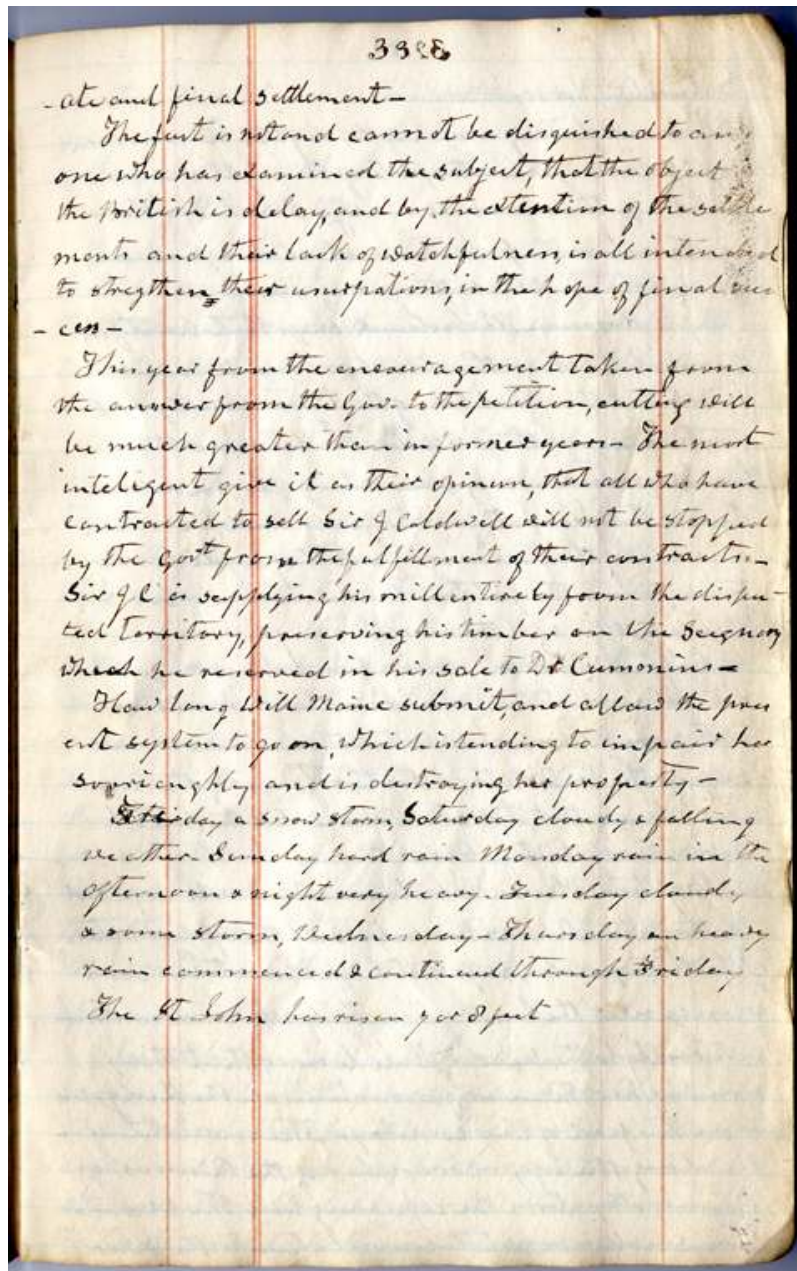 -ate and final settlement-
The fact is not and cannot be disguished to any
one who has examined the subject, that the object is
the British is delay, and by the extention of the settle
ments and their lack of watchfulness, is all intended
to stregthen their usurpations, in the hope of final suc
- cess -
This year from the encouragement taken from
the answer from the Gov. to the petition, cutting will
be much greater than in former years - The most
inteligent give it as their opinion, that all who have
contracted to sell Sir J Caldwell will not be stopped
by the Govt from the fulfillment of their contracts -
Sir J C is supplying his mill entirely from the dispu-
ted Territory, preserving his timber on the Seignory
which he reserved in his sale to Dr Cummins -
How long will Maine submit, and allow the pres
ent system to go on, which is tending to impair her
and is destroying her property -
Friday a snow storm, Saturday cloudy & falling
weather - Sunday hard rain Monday rain in the
afternoon & night very heavy - Tuesday cloudy
& some storm, Wednesday - Thursday an heavy
rain commenced & continued through Friday
The St John has risen 7 or 8 feet